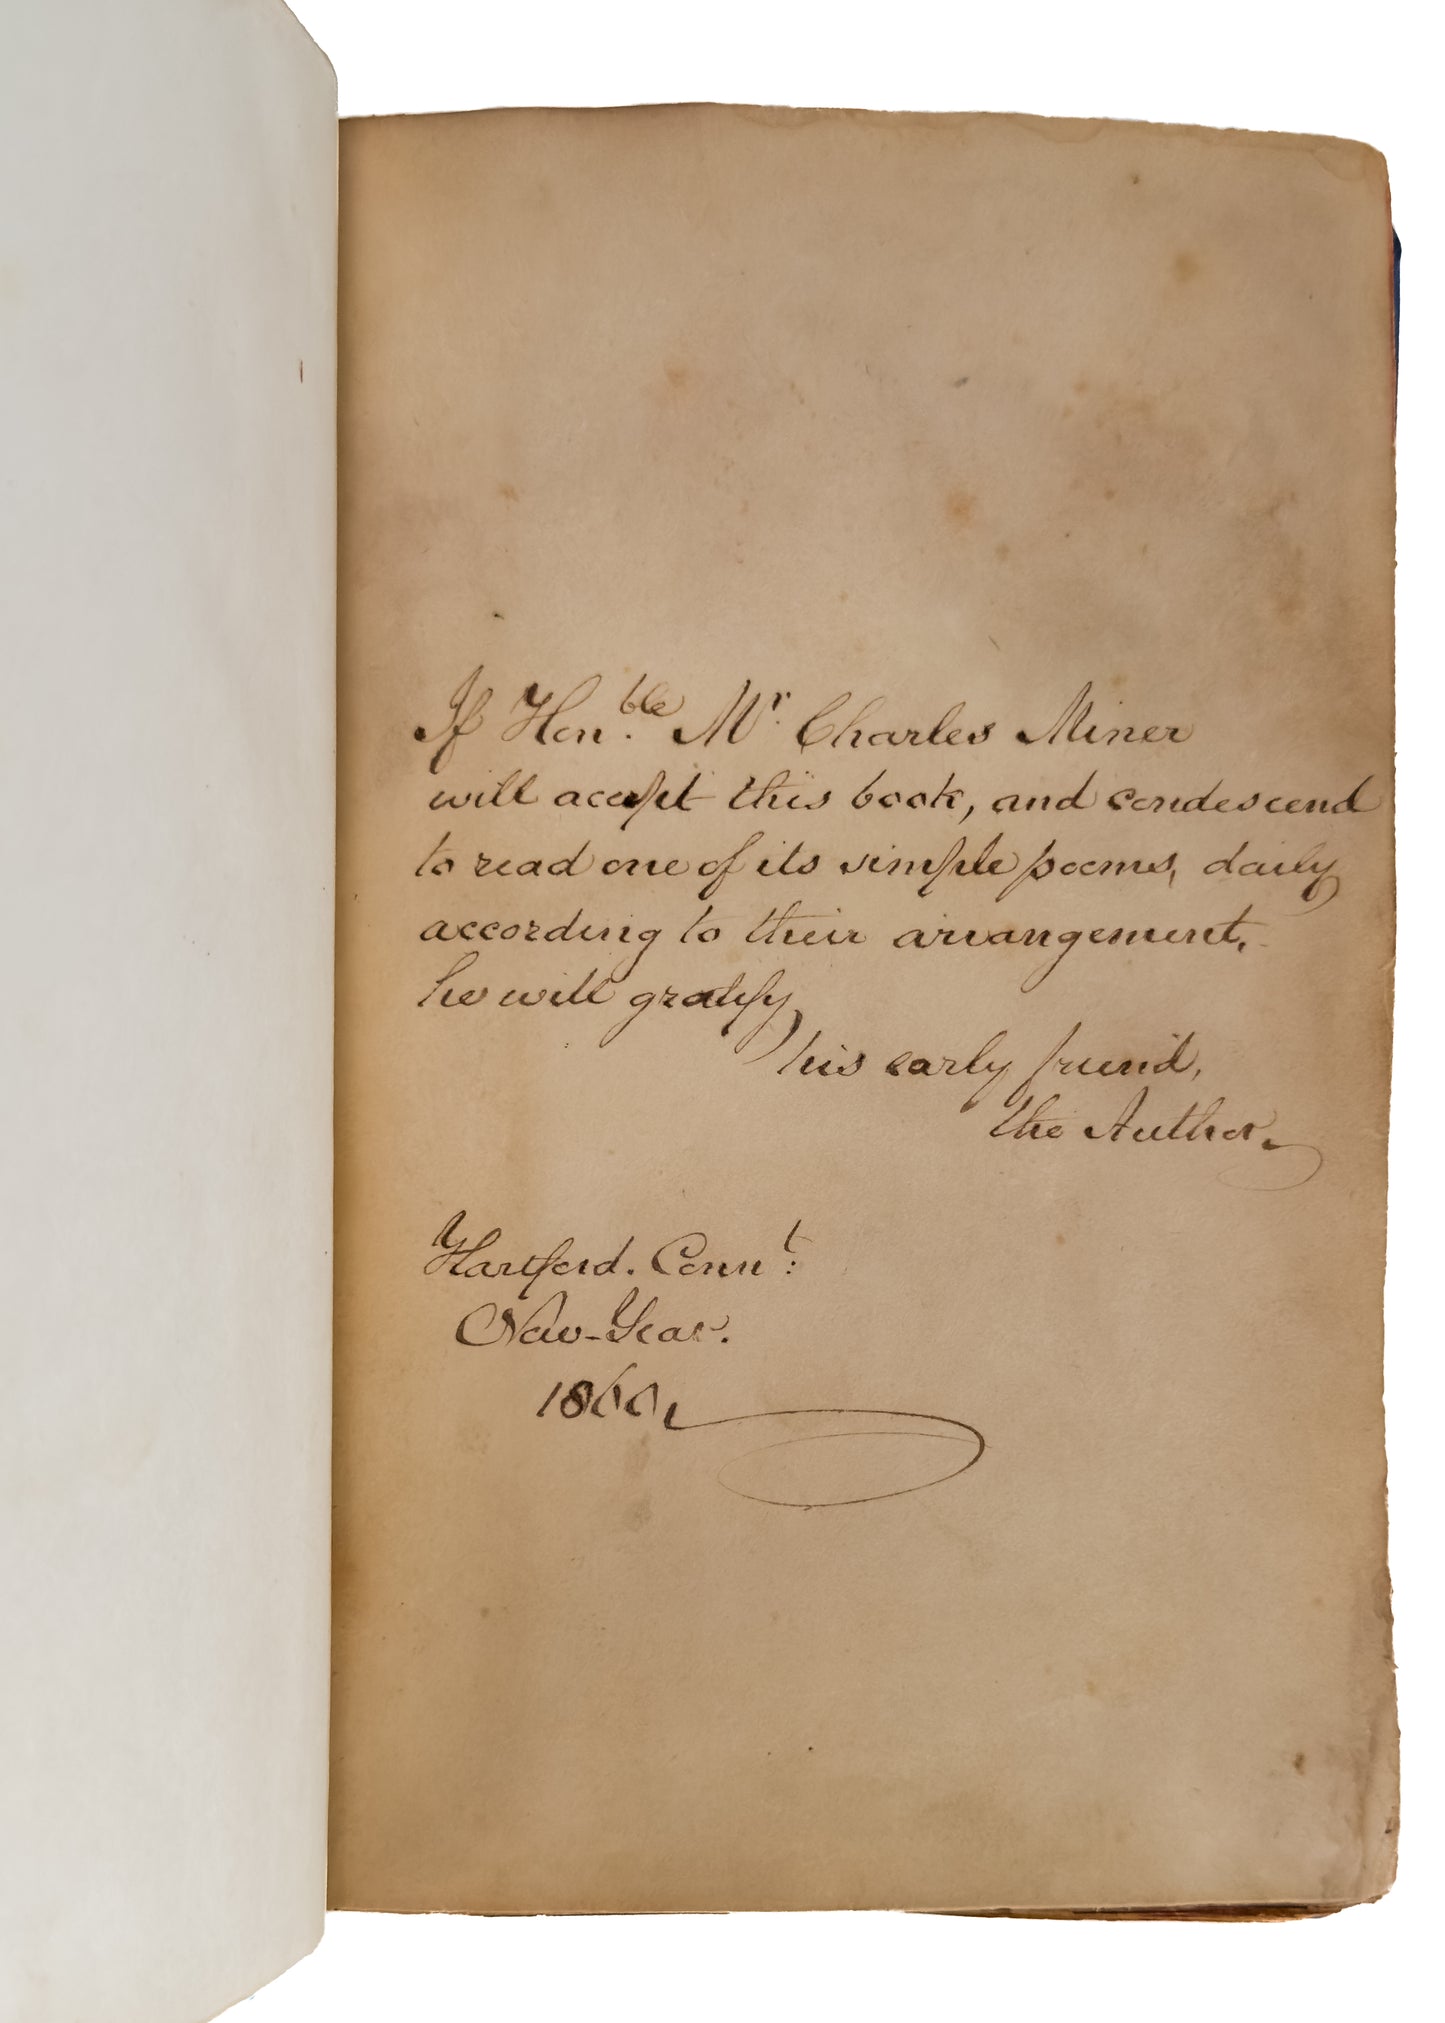 If Hon.ble Mr. Charles Miner
will accept this book, and condescend
to read one of its simple poems, daily
according to their arrangement,
he will gratify,
his early friend,
the Author.
Hartford. Connt:
New-Year.
1860.